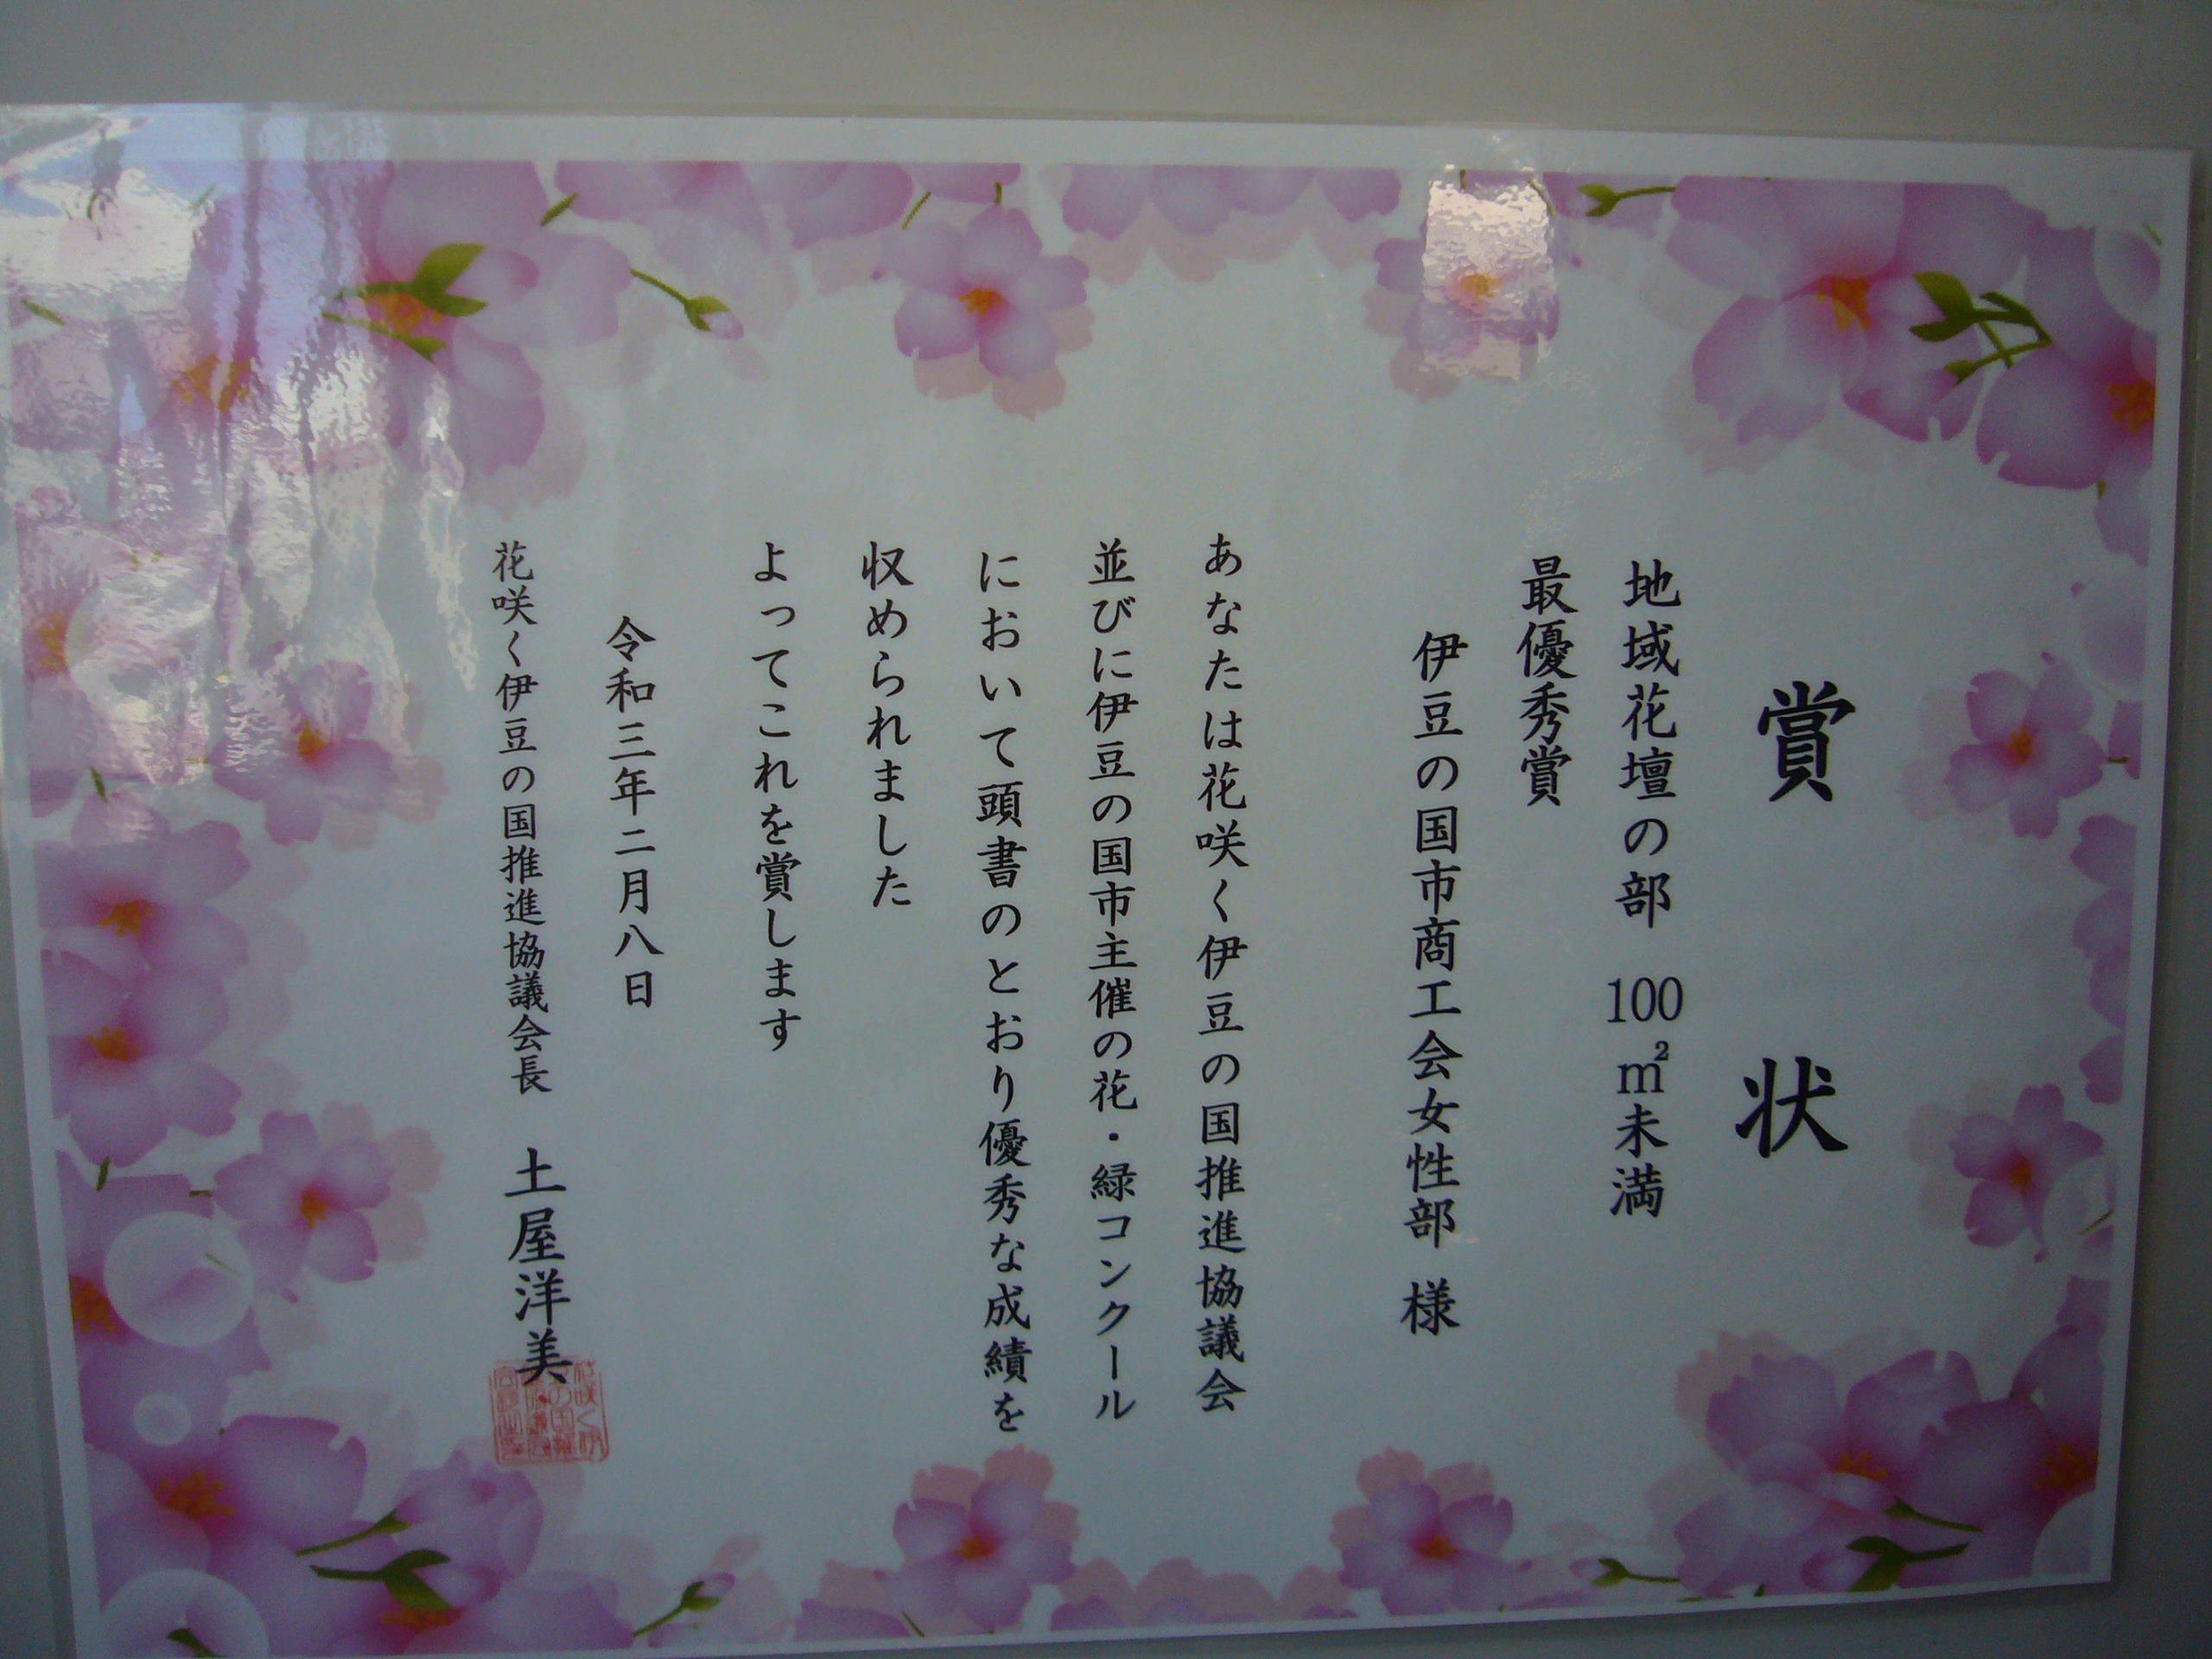 賞状
地域花壇の部　100㎡未満
最優秀賞
伊豆の国市商工会女性部　様
あなたは花咲く伊豆の国推進協議会
並びに伊豆の国市主催の花・緑コンクール
において頭書のとおり優秀な成績を
収められました
よってこれを賞します
令和三年二月八日
花咲く伊豆の国推進協議会長　土屋洋美